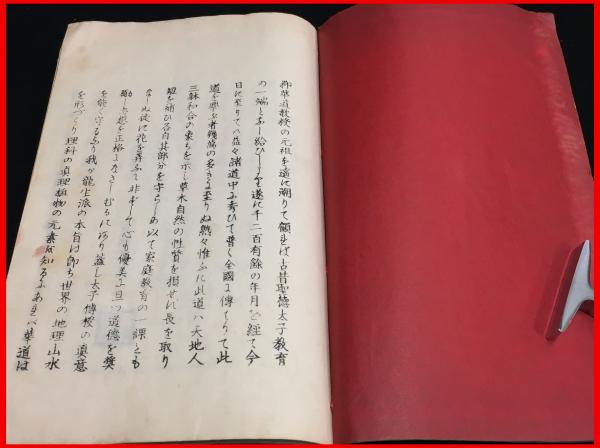 抑華道教授の元祖を遠に溯りて顧れば古昔聖徳太子教育
の一端となし給ひしより遂に千二百有餘の年月を経て今
日に至りては益々諸道中に秀ひて普く全國に傳はりて此
道を學ぶ者頗る多きに至りぬ熟々惟ふに此道ハ天地人
三躰和合の象ちを示し草木自然の性質を損せず長を取り
短を補ひ各自其部分を守らしめ以て家庭教育の一課とも
なしぬ徒に花を弄ふて非ずして心も優美に且つ道徳を奨
し想を正格になさしむるに
を能く守るあり我が龍生派の本旨は即ち世界の地理山水
を形づくり理科の真理植物の元素を知るにあれバ華道は